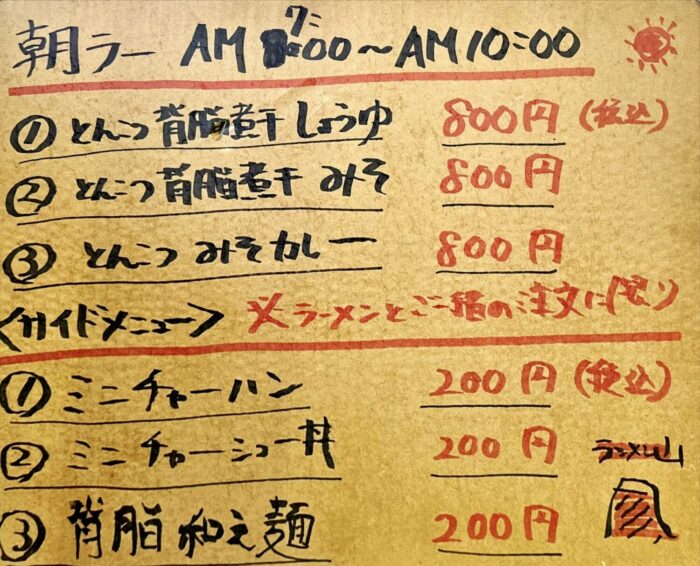 朝ラー AM 7:00〜AM10:00
① とんこつ背脂煮干しょうゆ 800円(税込)
② とんこつ背脂煮干 みそ 800円
③ とんこつ みそカレー 800円
〈サイドメニュー〉 ※ラーメンとご一緒の注文に限り
① ミニチャーハン 200円(税込)
② ミニチャーシュー丼 200円
③ 背脂和え麺 200円